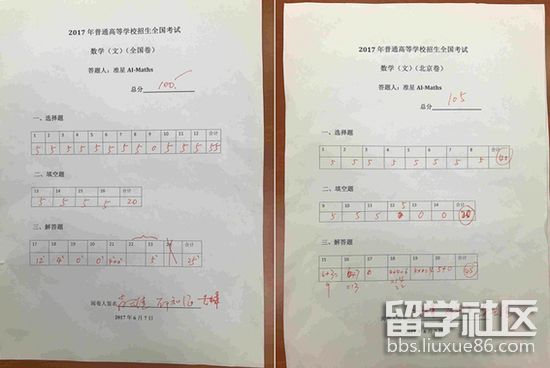 2017 年普通高等学校招生全国考试
数学（文）（全国卷）
答题人：准星 AI-Maths
总分 100
一、选择题
1 2 3 4 5 6 7 8 9 10 11 12 合计
5 5 5 5 5 5 5 5 0 5 5 5 55
二、填空题
13 14 15 16 合计
5 5 5 5 20
三、解答题
17 18 19 20 21 22 23 合计
12 4 0 0 5 25
阅卷人签名
2017 年 6 月 7 日
2017 年普通高等学校招生全国考试
数学（文）（北京卷）
答题人：准星 AI-Maths
总分 105
一、选择题
1 2 3 4 5 6 7 8 合计
5 5 5 5 5 5 5 5 40
二、填空题
9 10 11 12 13 14 合计
5 5 5 5 0 0 20
三、解答题
15 16 17 18 19 20 合计
6+3= 0 5+0
9 =13
留学社区
bbs.liuxue86.com